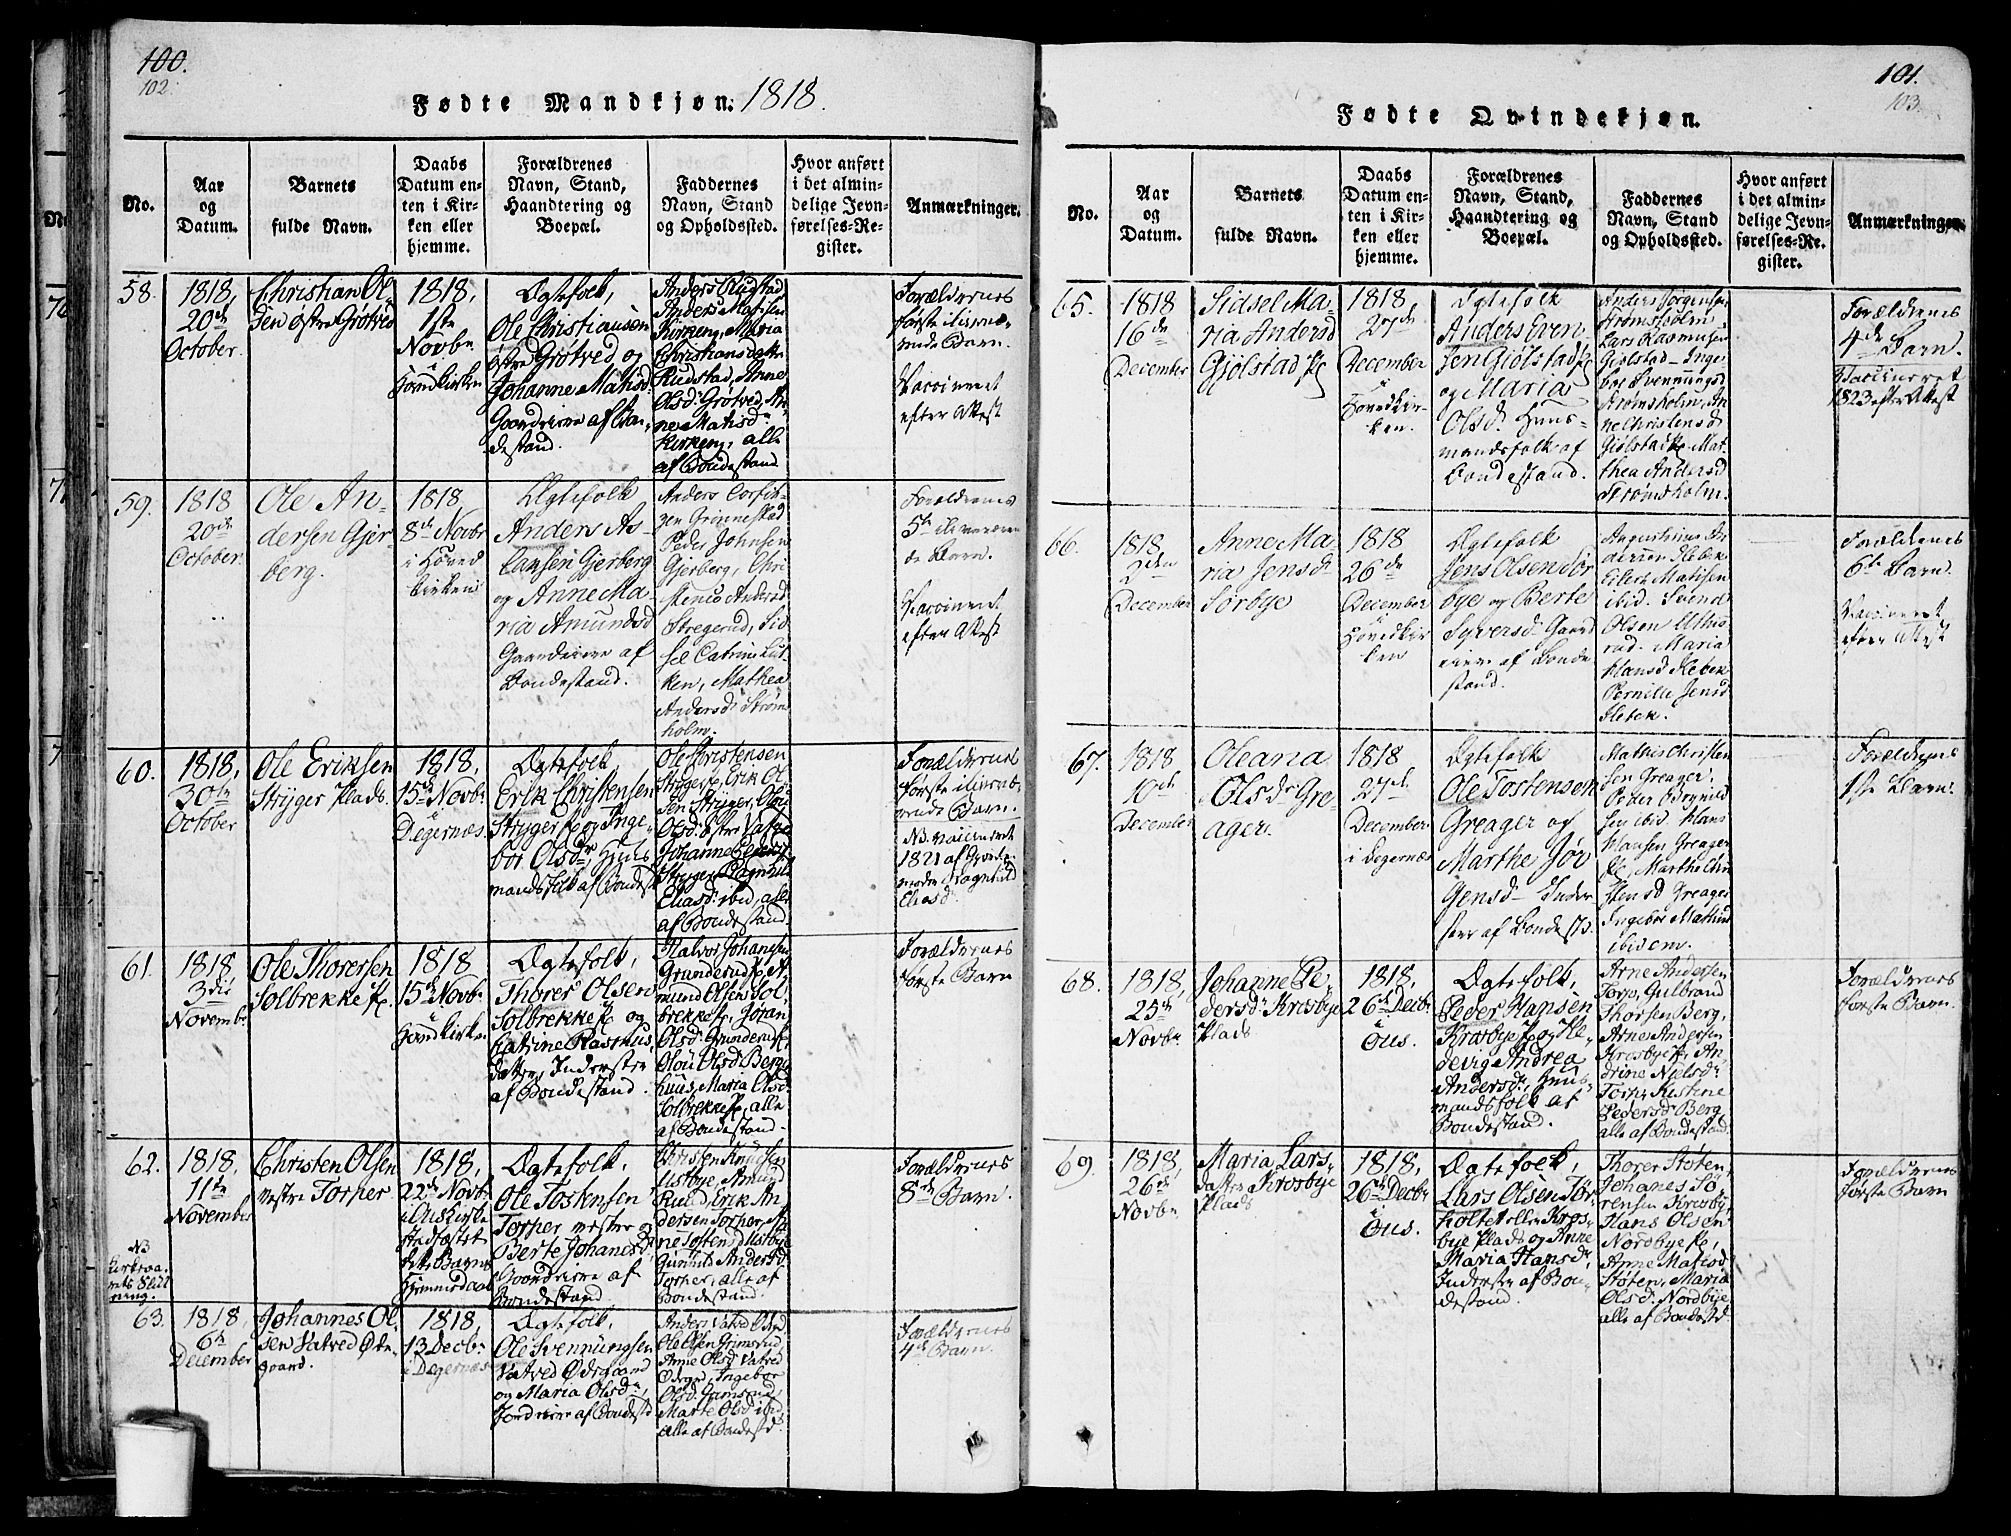 100.
102.
Fødte Mandkjøn. 1818.
No.
Aar
og
Datum.
Barnets
fulde Navn.
Daabs
Datum en-
ten i Kir-
ken eller
hjemme.
Forældrenes
Navn, Stand,
Haandtering og
Boepæl.
Faddernes
Navn, Stand
og Opholdssted.
Hvor anført
i det almin-
delige Jevn-
førelses-Re-
gister.
Anmærkninger.
58.
1818,
20de
October.
Christian Ol-
sen østre Grøtved
1818,
1ste
Novbr
i
Hovedkirken
Ægtefolk,
Ole Christiansen
østre Grøtved og
Johanne Matisd.
Gaardeiere af Bon-
destand.
Anders Rustad
Anders Matisen
Kirkeng, Maria
Christiansdatter
Rudstad, Anne
Olsd. Grøtved, An-
ne Matisdr
Kirkeng, alle
af Bondestand
Forældrenes
første ilivevæ-
rende Barn.
Vaccineret
efter Attest
59.
1818
20de
October.
Ole An-
dersen Gjer-
berg.
1818,
8de Novbr
i Hoved
kirken
Ægtefolk
Anders As-
lansen Gjerberg
og Anne Ma-
ria Amundsd
Gaardeiere af
Bondestand.
Anders
Grinnestad
Peder Johnsen
Gjerberg, Chri-
Andersd
Stregerud, Sid-
sel Catrine
Mathea
Andersd. Strøms
holm.
Forældrenes
5te iliveværen
de Barn.
Vaccineret
efter Attest
60.
1818,
30te
October
Ole Eriksen
Stryger Plads.
1818,
15de Novbr
i
Degernæs.
Ægtefolk,
Erik Christensen
Stryger Pl og Inge-
bor Olsdr, Huus
mandsfolk af Bondest
Ole Christensen
Stryger Pl, Erik Ol-
sen Stryger,
Olsd: østre
Johanne
Stryger Ragnhild
Eliasd: ibid, alle
af Bondestand
Forældrenes
første ilivevæ-
rende Barn.
NB. vaccineret
1821 af Gjorde-
moder Ragnhild
Eliasd.
61.
1818,
3die
Novembr
Ole Thorersen
Solbrekke Pl.
1818
15de Novbr
i
Hovedkirken
Ægtefolk,
Thorer Olsen
Solbrekke Pl og
Katrine Rasmus-
datter, Inderster
af Bondestand.
Halvor Johansen
Grunderud Pl, A-
mund Olsen Sol-
brekke Pl, Joran
Olsd: Grunderud Pl,
Olou Olsd: Berg-
huus, Maria Olsd:
Solbrekke Pl, alle
af Bondestand.
Forældrenes
første Barn
62.
NB
ning.
1818,
11te
November
Christen Olsen
vestre Torper.
1818,
22de Novbr
i Øus Kirke
stadfæstet
dets Barne
Hjemmedaab
Ægtefolk,
Ole Tostensen
Torper vestre og
Berte Johanesdr
Gaardeiere af
Bondestand
Christen Knudsen
Lustbye, Amund
Ruud, Erik An-
dersen Torper, An-
ne Tostensd. Lustbye
Gunild Andersd:
Torper, alle af
Bondestand.
Forældrenes
8de Barn.
63.
1818,
6te
December
Johannes Ol-
sen Vatved Øde-
gaard.
1818,
13 Decbr
i Degernæs
Ægtefolk,
Ole Svennungsen
Vatved Ødegaard
og Maria Olsdr,
Jordeiere af Bondestd
Anders Vatved Ødegd,
Ole Olsen Grimsrud,
Anne Olsd: Vatved
Ødegd, Ingebor
Olsd: Grimsrud,
Marte Olsd ibid
alle af Bondestd.
Forældrenes
4de Barn.
101.
103.
Fødte Qvindekjøn.
No.
Aar
og
Datum.
Barnets
fulde Navn.
Daabs
Datum en-
ten i Kir-
ken eller
hjemme.
Forældrenes
Navn, Stand,
Haandtering og
Boepæl.
Faddernes
Navn, Stand
og Opholdssted.
Hvor anført
i det almin-
delige Jevn-
førelses-Re-
gister.
Anmærkninger.
65.
1818
16de
December
Sidsel Ma-
ria Andersd
Gjølstad Pl
1818,
27de
December
i
Hovedkir-
ken.
Ægtefolk
Anders Even
sen Gjølstad Pl
og Maria
Olsd. Huus-
mandsfolk af
Bondestand.
Anders Jørgensen
Strømsholm,
Lars Rasmusen
Gjølstad - Inge
bor Svennungsd
Strømsholm, An
ne Christensd
Gjølstad Pl, Mat-
thea Andersd
Strømsholm.
Forældrenes
4de Barn.
Vaccineret
1823 efter Attest
66.
1818,
2den
December
Anne Ma-
ria Jensd
Sørbye
1818
26de
December
i
Hovedkir
ken
Ægtefolk
Jens Olsen Sør
bye og Berte
Syversd. Gaard
eiere af Bonde
stand.
Augustinus
Klebek
Eilert Matisen
ibid. Svend
Olsen
Maria
Hansd Klebek
Pernille Jensd
Klebek.
Forældrenes
6te Barn.
Vaccineret
efter Attest
67.
1818
10de
December
Oleana
Olsdr Gre
ager.
1818
27de
December
i Degernæs
Ægtefolk
Ole Tostensen
Greager og
Marthe Jør
gensd - Inder
ster af Bondest.
Mathis Christen
sen Greager,
Peder
sen ibid Hans
Hansen Greager
Pl, Marthe Chri
stensd Greager
Ingebor
ibidem.
Forældrenes
1ste Barn.
68.
1818,
25de
Novbr.
Johanne Pe-
dersdr Krosbye
Plads
1818,
26de Decbr
i
Øus.
Ægtefolk,
Peder Hansen
Krosbye Pl og He-
devig Andrea
Andersdr, Huus-
mandsfolk af
Bondestand.
Arne Andersen
Torp, Gulbrand
Thorsen Berg,
Arne Andersen
Krosbye Pl, An-
drine Nielsdr
Torp, Kestine
Pedersd: Berg
alle af Bondestand.
Forældrenes
første Barn
69.
1818,
26de
Novbr
Maria Lars-
datter Krosbye
Plads
1818,
26de Decbr
i
Øus.
Ægtefolk,
Lars Olsen Tør-
holtet eller Kros-
bye Plads og Anne
Maria Hansdr,
Inderster af Bon-
destand.
Thorer Støten,
Johanes Sø-
rensen Krosby,
Hans Olsen
Nordbye Pl,
Anne Matisd
Støten, Maria
Olsd: Nordbye
alle af Bondestd
Forældrenes
første Barn